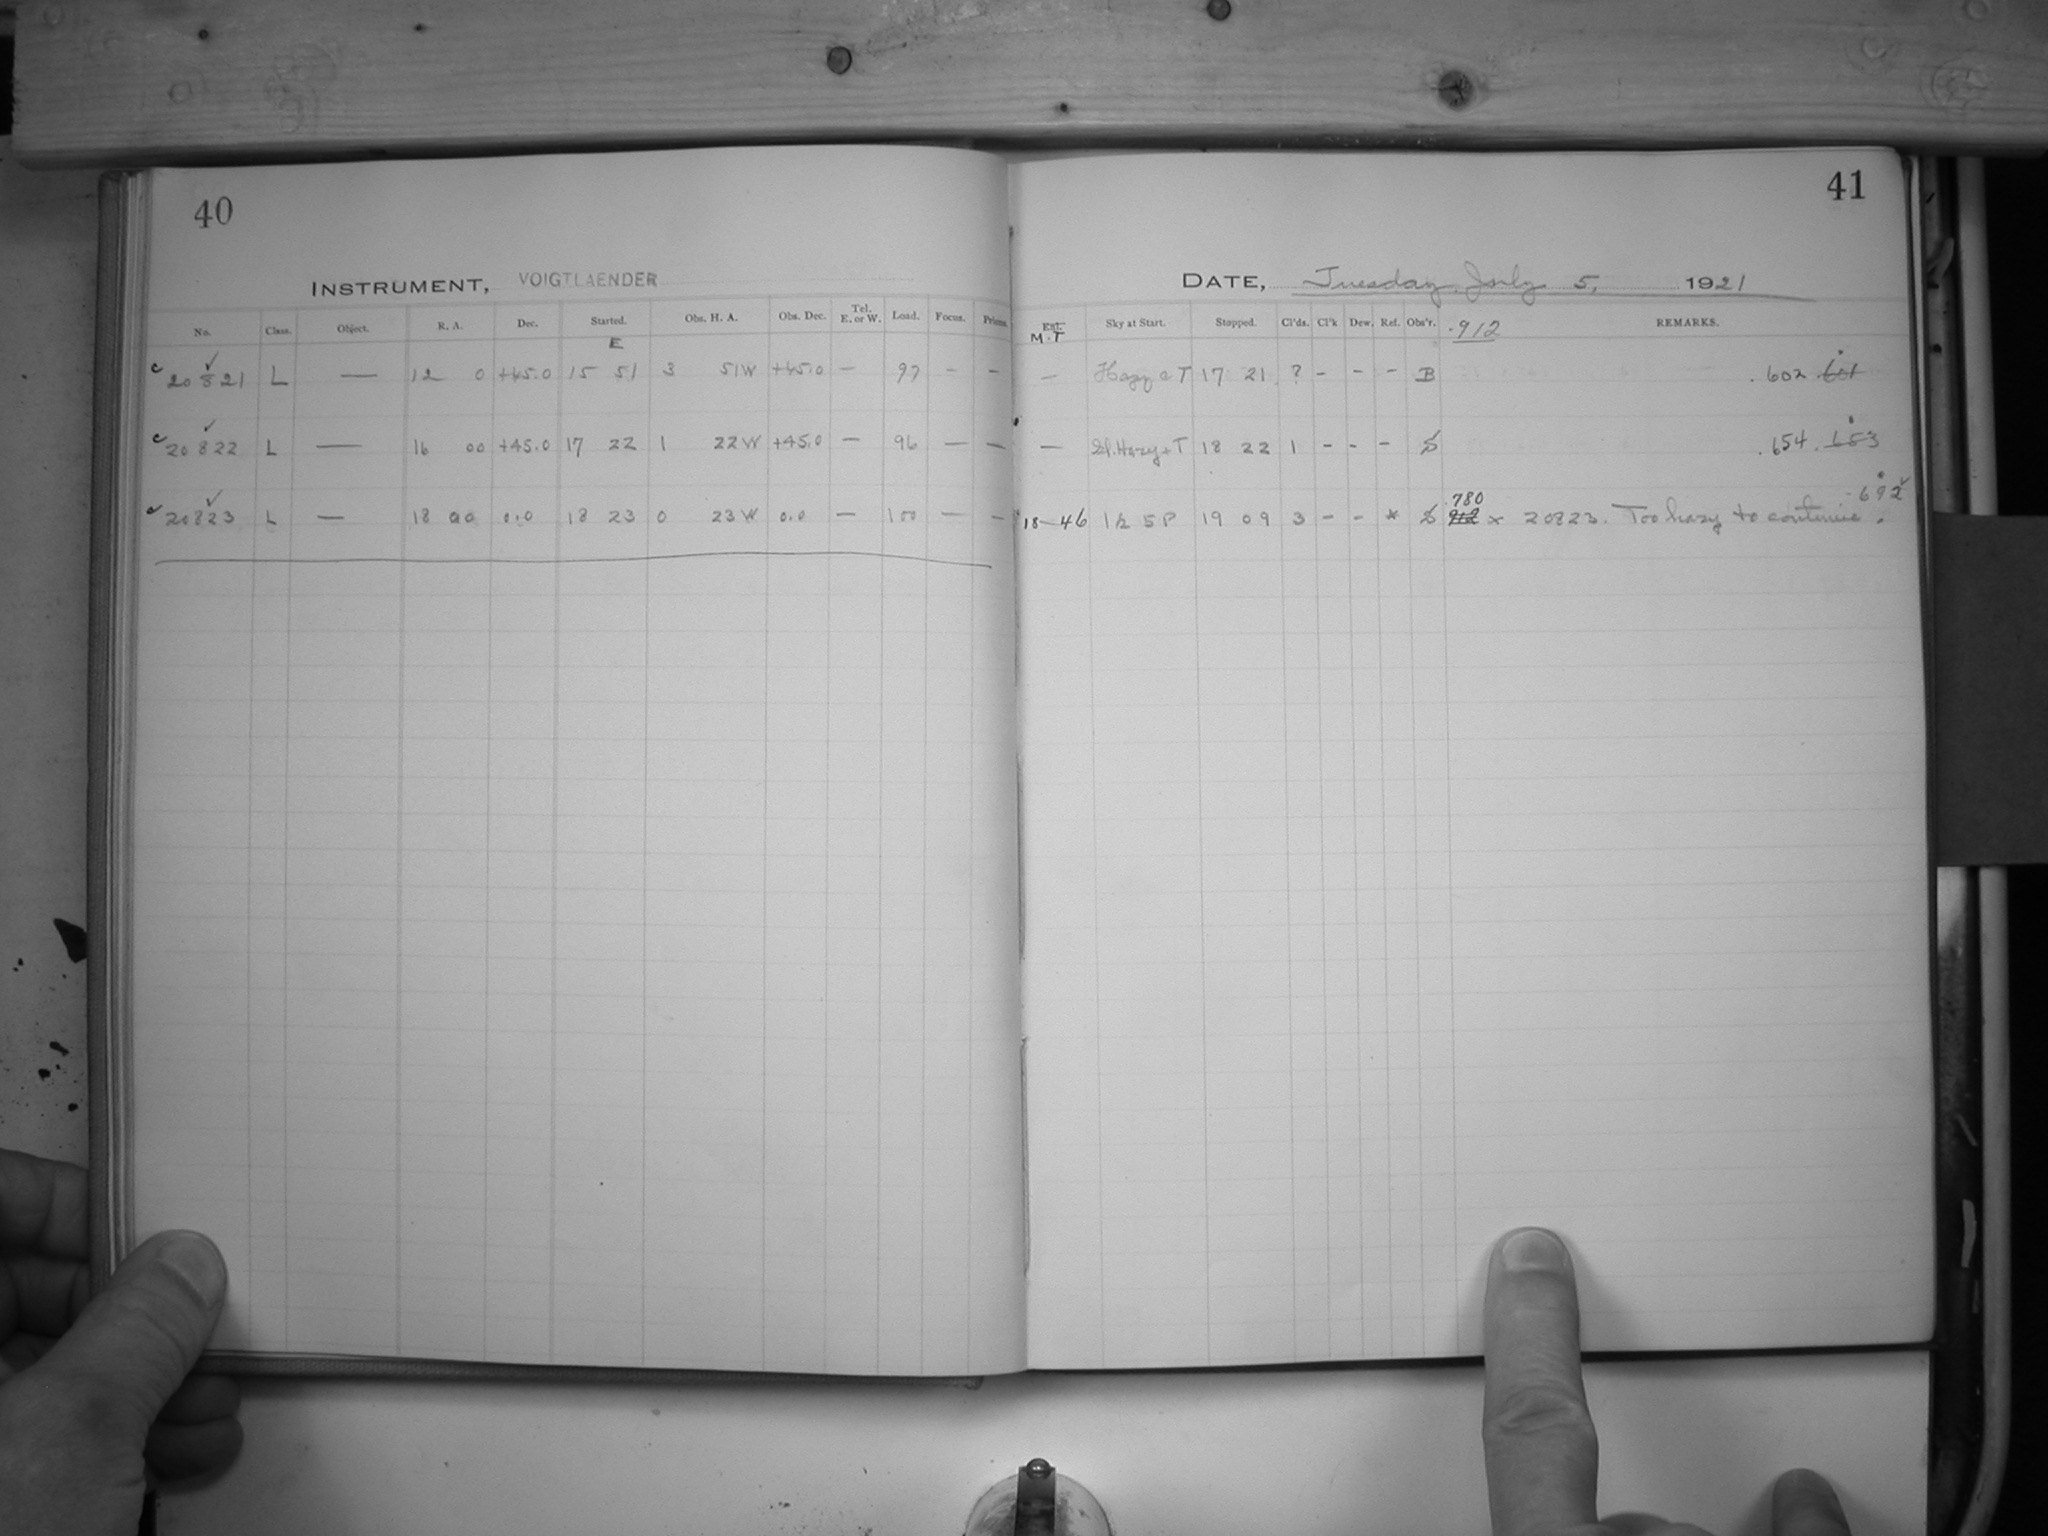 40
INSTRUMENT, VOIGTLAENDER
No. Class. Object. R. A. Dec. Started. Obs. H. A. Obs. Dec. Tel. E. or W. Load. Focus. Prisms.
E
c 20821 ✓ L — 12 0 +45.0 15 51 3 51W +45.0 — 97 - -
c 20822 ✓ L — 16 00 +45.0 17 22 1 22W +45.0 — 96 — —
c 20823 ✓ L — 18 00 0.0 18 23 0 23W 0.0 — 100 — —
41
DATE, Tuesday, July 5, 1921
Est. M.T Sky at Start. Stopped. Cl'ds. Cl'k Dew. Ref. Obs'r. .912 REMARKS.
— Hazy a T 17 21 ? - - - B .602 .601
— Sl. Hazy a T 18 22 1 - - - S .654 .653
.780 .692
18-46 1h 5P 19 09 3 - - * S 912 x 20823. Too hazy to continue.